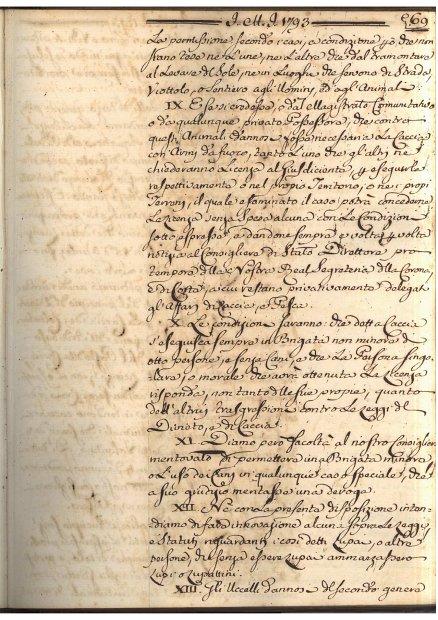 I. M. I. 1793 69
La permissione secondo i casi, a condizione però che non
siano tese nè l'une, nè l'altre che dal tramontare
al levare del Sole, nè in Luoghi che servono di Strada,
Viottolo, o Sentiero agli Uomini, ed agl'Animali.
IX. E se si credesse, o dal Magistrato Comunitativo
o da qualunque privato Possessore, che contro
questi Animali dannosi fosse necessaria la Caccia
con Armi da fuoco, tanto l'uno che gl'altri ne
chiederanno Licenza al Giusdicente, per eseguirla
respettivamente o nel proprio Territorio, o nei propri
Terreni, il quale esaminato il caso potrà concedere
la Licenza senza Spesa alcuna con le Condizioni
sotto espresse, e dandone sempre volta per volta
notizia al Consigliere di Stato Direttore pro
tempore della Nostra Real Segreteria della Corona,
e di Corte, a cui restano privativamente delegati
gl'Affari di Caccia, e Pesca.
X. Le condizioni saranno: che detta Caccia
s'eseguisca sempre in Brigata non minore di
otto persone, e senza Cani, e che la Persona singo-
lare, o morale che avrà ottenuta la Licenza
risponda, non tanto delle sue proprie, quanto
dell'altrui trasgressioni contro le Leggi del
Divieto, e di Caccia.
XI. Diamo però facoltà al nostro Consigliere
mentovato di permettere una Brigata minore,
o l'uso dei Cani in qualunque caso speciale, che
a suo giudizio meritasse una deroga.
XII. Nè con la presente disposizione inten-
diamo di fare innovazione alcuna sopra le Leggi
e Statuti riguardanti i così detti Lupai, o altre
persone, che senza essere Lupai ammazzassero
Lupi, o Lupattini.
XIII. Gli Uccelli dannosi del secondo genere